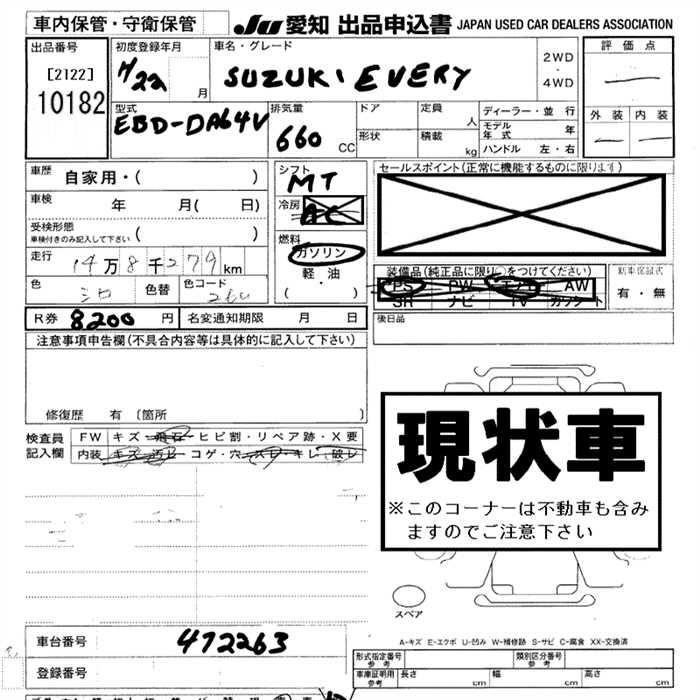 車内保管・守衛保管
JU 愛知 出品申込書 JAPAN USED CAR DEALERS ASSOCIATION
出品番号
[2122]
10182
初度登録年月
H/22 月
車名・グレード
SUZUKI EVERY
2WD
・
4WD
評価点
外装 内装
型式
EBD-DA64V
排気量
660 CC
ドア
形状
定員 人
積載 kg
ディーラー・並行
モデル年式 年
ハンドル 左・右
車歴 自家用・( )
車検 年 月( 日)
受検形態
車検付きのみ記入して下さい ( )
走行 14万8千279km
色 シロ 色替 色コード 26U
R券 8200円 名変通知期限 月 日
シフト
MT
冷房
AC
燃料
ガソリン
軽・油
( )
セールスポイント(正常に機能するものに限ります)
装備品(純正品に限り○をつけてください)
PS PW エアB AW
SR ナビ TV カワシート
新車保証書
有・無
後日品
注意事項申告欄(不具合内容等は具体的に記入して下さい)
修復歴 有〔箇所 〕
検査員記入欄
FW キズ・飛石・ヒビ割・リペア跡・X要
内装 キズ・汚レ・コゲ・穴・スレ・キレ・破レ
現状車
※このコーナーは不動車も含み
ますのでご注意下さい
スペア
A-キズ E-エクボ U-凹み W-補修跡 S-サビ C-腐食 XX-交換済
車台番号 472263
登録番号
形式指定番号 参考
類別区分番号 参考
車庫証明用 参考 長さ cm 幅 cm 高さ cm